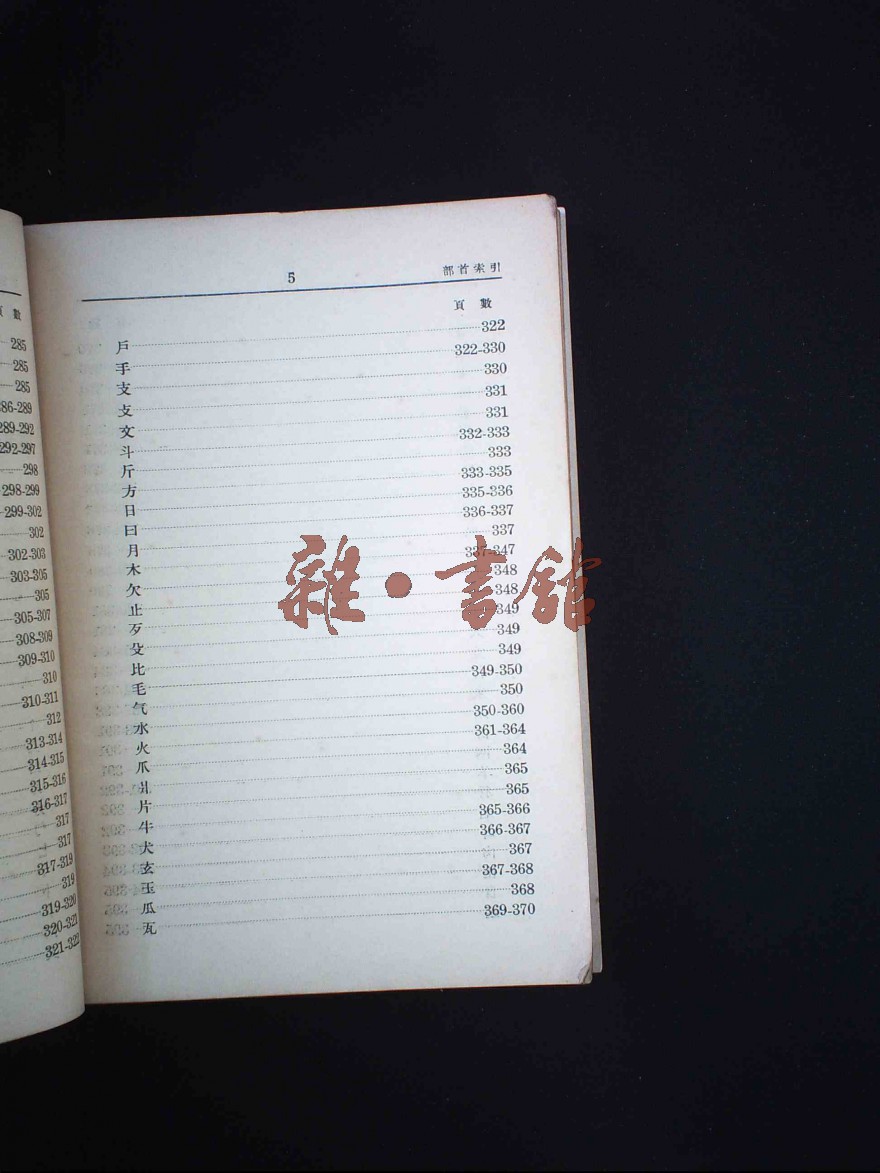 頁 數
285
285
285
86-289
289-292
292-297
298
298-299
299-302
302
302-303
303-305
305
305-307
308-309
309-310
310
310-311
312
313-314
314-315
315-316
316-317
317
317
317-319
319
319-320
320-321
321-322
5 部首索引
頁 數
戶 322
手 322-330
支 330
攴 331
文 331
斗 332-333
斤 333
方 333-335
日 335-336
曰 336-337
月 337
木 337-347
欠 348
止 348
歹 349
殳 349
比 349
毛 349-350
气 350
水 350-360
火 361-364
爪 364
爿 365
片 365
牛 365-366
犬 366-367
玄 367
玉 367-368
瓜 368
瓦 369-370
雜·書館